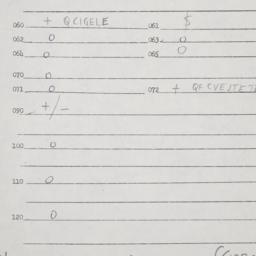 060 + QCIGELE 061 $
062 0 063 0
064 0 065 0
070 0
071 0 072 +
090 +/-
100 0
110 0
120 0